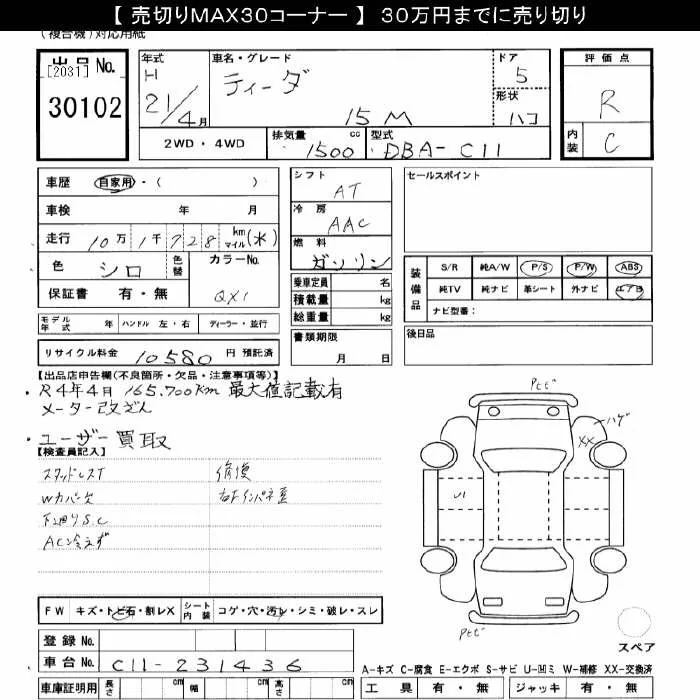 【 売切りMAX30コーナー 】 30万円までに売り切り
(複合機)対応用紙
出品No.
[2031]
30102
年式
H
21/4月
車名・グレード
ティーダ
15M
ドア
5
形状
ハコ
評価点
R
内装
C
2WD・4WD
排気量 cc
1500
型式
DBA-C11
車歴 自家用・( )
車検 年 月
走行 10万1千728 km マイル (※)
色 シロ 色替
カラーNo.
QX1
保証書 有・無
シフト
AT
冷房
AAC
燃料
ガソリン
乗車定員 名
積載量 kg
総重量 kg
書類期限
月 日
セールスポイント
装備品
S/R 純A/W P/S P/W ABS
純TV 純ナビ 革シート 外ナビ エアB
ナビ型番:
後日品
モデル年式 年 ハンドル 左・右 ディーラー・並行
リサイクル料金 10580 円 預託済
【出品店申告欄(不良箇所・欠品・注意事項等)】
・R4年4月 165.700km 最大値記載有
メーター改ざん
・ユーザー買取
【検査員記入】
スタッドレスT
Wカバー欠
下廻りS.C
AC冷えず
修復
右Fインパネ歪
Pとび
ハゲ
XX
U1
Pとび
スペア
FW キズ・トビ石・割レX
シート内装 コゲ・穴・汚レ・シミ・破レ・スレ
登録No.
車台No. C11-231436
車庫証明用 長さ cm 幅 cm 高さ cm
A-キズ C-腐食 E-エクボ S-サビ U-凹ミ W-補修 XX-交換済
工具 有・無 ジャッキ 有・無